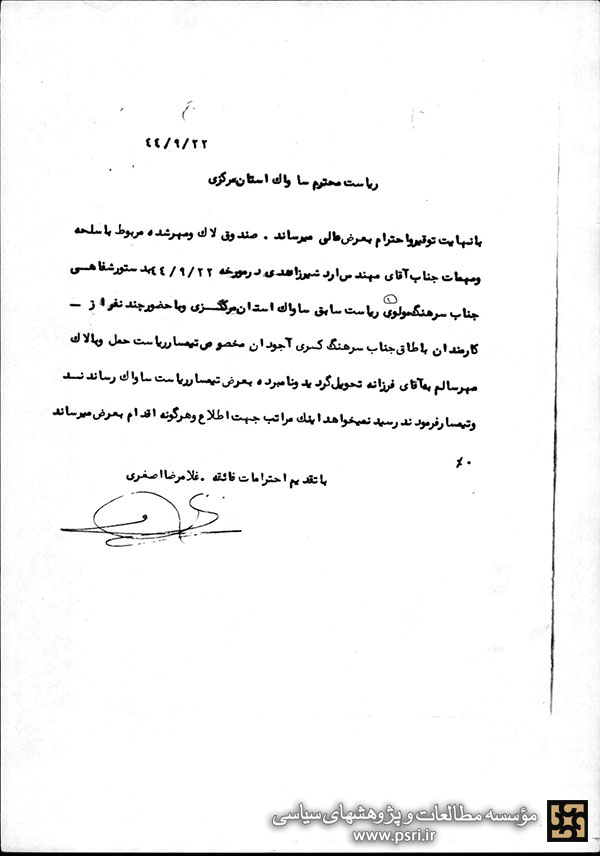 ۴۴/۹/۲۲
ریاست محترم ساواک استان مرکزی
با نهایت توقیر و احترام بعرض عالی میرساند . صندوق لاک و مهر شده مربوط باسلحه
و مهمات جناب آقای مهندس ارد شیر زاهدی در مورخه ۴۴/۹/۲۲ بد ستور شفاهی
جناب سرهنگ مولوی ۱ ریاست سابق ساواک استان مرکزی و با حضور چند نفر از –
کارمندان باطاق جناب سرهنگ کسری آجودان مخصوص تیمسار ریاست حمل و با لاک
مهر سالم به آقای فرزانه تحویل گردید و نامبرده بعرض تیمسار ریاست ساواک رساندند
و تیمسار فرمودند رسید نمیخواهد اینک مراتب جهت اطلاع و هرگونه اقدام بعرض میرساند
۰٪
با تقدیم احترامات فائقه . غلامرضا اصغری
مؤسسه مطالعات و پژوهشهای سیاسی
www.psri.ir